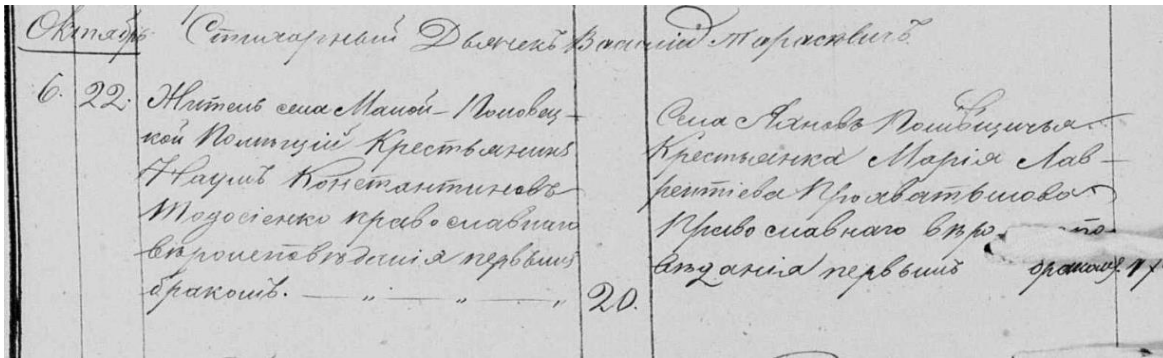 Октябрь Стихарный Дьячекъ Василій Тарасевичъ
6. 22. Житель села Малой-Половец-
кой Помѣщицій Крестьянинъ
Наумъ Константиновъ
Тодосіенко православнаго
вѣроисповѣданія первымъ
бракомъ. — „ — „ — „
20.
Села Яхновъ Помѣщичья
Крестьянка Марія Лав-
рентіева
Православнаго вѣро
вѣданія первымъ бракомъ. 17